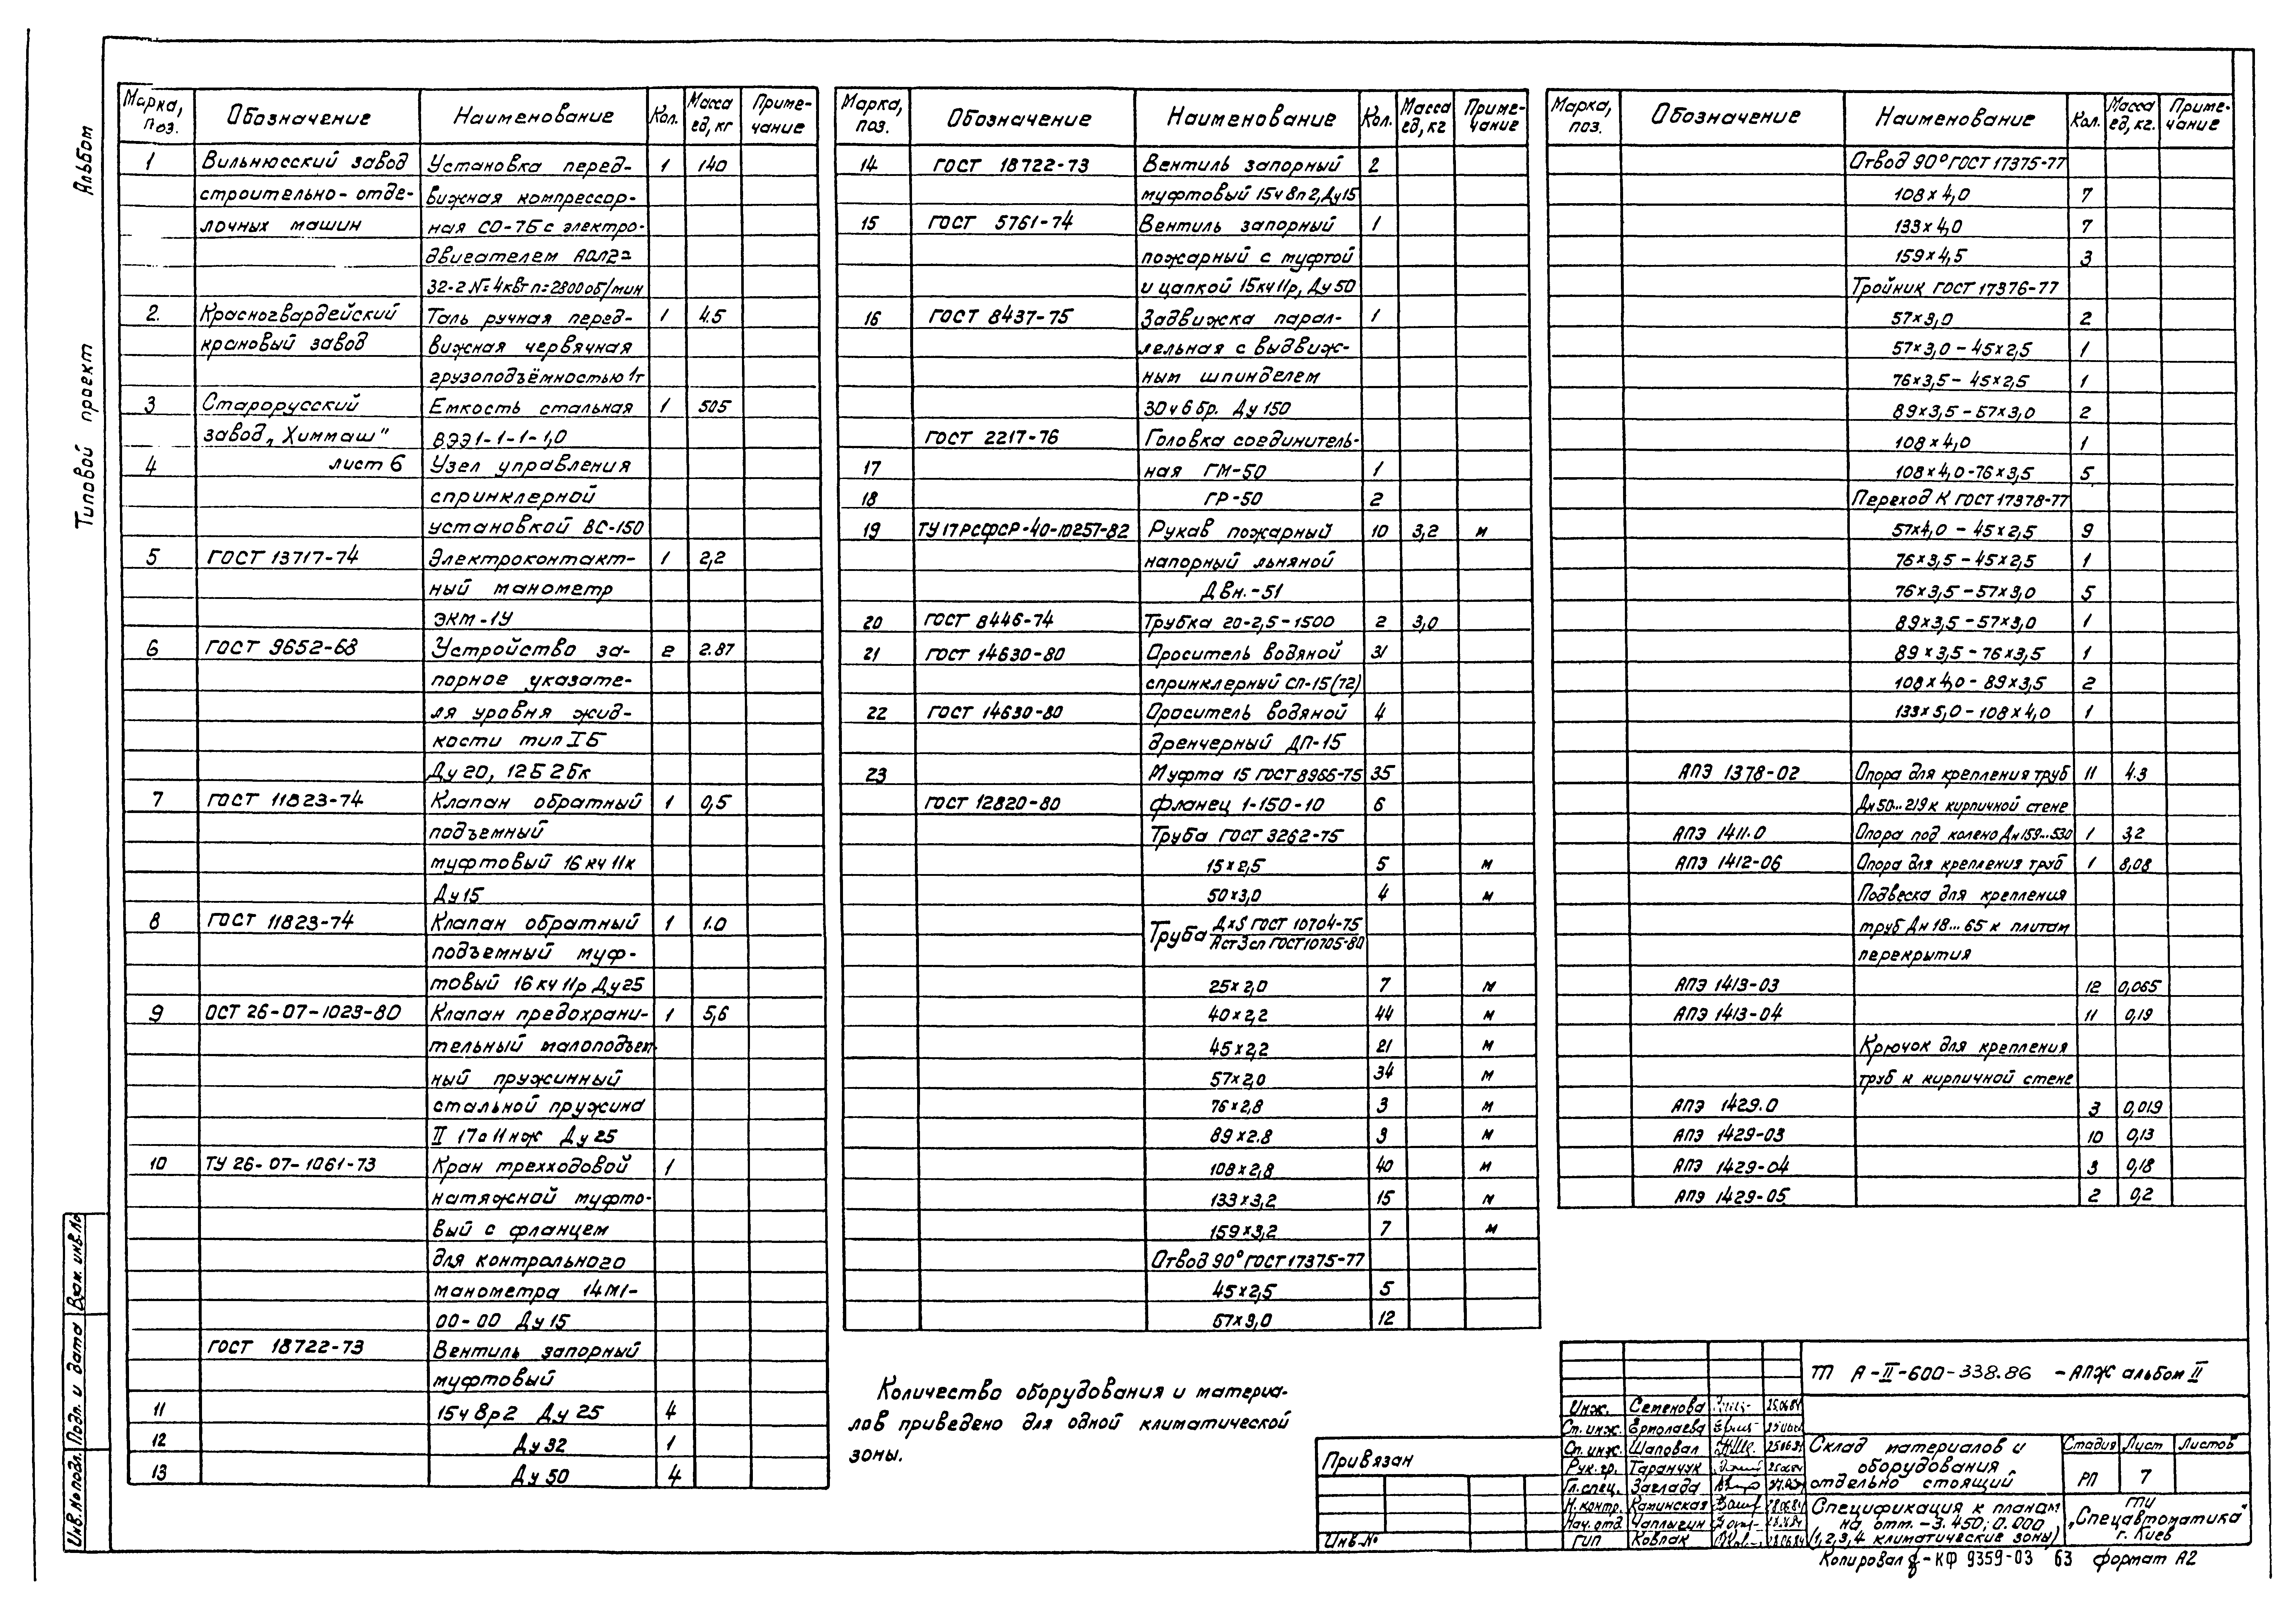 Альбом
Типовой проект
Марка, поз. Обозначение Наименование Кол. Масса ед, кг Приме-чание
1 Вильнюсский завод Установка перед- 1 140
строительно-отде- вижная компрессор-
лочных машин ная СО-7Б с электро-
двигателем АОЛ2-
32-2 N=4кВт n=2800об/мин
2. Красногвардейский Таль ручная перед- 1 4.5
крановый завод вижная червячная
грузоподъёмностью 1т
3 Старорусский Емкость стальная 1 505
завод „Химмаш" ВЭЭ1-1-1-1,0
4 лист 6 Узел управления
спринклерной
установкой ВС-150
5 ГОСТ 13717-74 Электроконтакт- 1 2,2
ный манометр
ЭКМ-1У
6 ГОСТ 9652-68 Устройство за- 2 2.87
порное указате-
ля уровня жид-
кости тип I Б
Ду 20, 12Б 2Бк
7 ГОСТ 11823-74 Клапан обратный 1 0,5
подъемный
муфтовый 16 кч 11к
Ду 15
8 ГОСТ 11823-74 Клапан обратный 1 1.0
подъемный муф-
товый 16 кч 11р Ду 25
9 ОСТ 26-07-1023-80 Клапан предохрани- 1 5,6
тельный малоподъем-
ный пружинный
стальной пружина
II 17с 11 нж Ду 25
10 ТУ 26-07-1061-73 Кран трехходовой 1
натяжной муфто-
вый с фланцем
для контрольного
манометра 14М1-
00-00 Ду 15
ГОСТ 18722-73 Вентиль запорный
муфтовый
11 15ч 8р2 Ду 25 4
12 Ду 32 1
13 Ду 50 4
Марка, поз. Обозначение Наименование Кол. Масса ед, кг Приме-чание
14 ГОСТ 18722-73 Вентиль запорный 2
муфтовый 15ч 8п2, Ду 15
15 ГОСТ 5761-74 Вентиль запорный 1
пожарный с муфтой
и цапкой 15кч 11р, Ду 50
16 ГОСТ 8437-75 Задвижка парал- 1
лельная с выдвиж-
ным шпинделем
30ч 6 бр. Ду 150
ГОСТ 2217-76 Головка соединитель-
17 ная ГМ-50 1
18 ГР-50 2
19 ТУ 17 РСФСР-40-10257-82 Рукав пожарный 10 3,2 м
напорный льняной
Двн.-51
20 ГОСТ 8446-74 Трубка 20-2,5-1500 2 3,0
21 ГОСТ 14630-80 Ороситель водяной 31
спринклерный СП-15(72)
22 ГОСТ 14630-80 Ороситель водяной 4
дренчерный ДП-15
23 Муфта 15 ГОСТ 8966-75 35
ГОСТ 12820-80 Фланец 1-150-10 6
Труба ГОСТ 3262-75
15×2,5 5 м
50×3,0 4 м
Труба ДхS ГОСТ 10704-75
АСт3сп ГОСТ 10705-80
25×2,0 7 м
40×2,2 44 м
45×2,2 21 м
57×2,0 34 м
76×2,8 3 м
89×2.8 3 м
108×2,8 40 м
133×3,2 15 м
159×3,2 7 м
Отвод 90° ГОСТ 17375-77
45×2,5 5
57×3,0 12
Количество оборудования и материа-
лов приведено для одной климатической
зоны.
Марка, поз. Обозначение Наименование Кол. Масса ед, кг. Приме-чание
Отвод 90° ГОСТ 17375-77
108×4,0 7
133×4,0 7
159×4,5 3
Тройник ГОСТ 17376-77
57×3,0 2
57×3,0-45×2,5 1
76×3,5-45×2,5 1
89×3,5-57×3,0 2
108×4,0 1
108×4,0-76×3,5 5
Переход К ГОСТ 17378-77
57×4,0-45×2,5 9
76×3,5-45×2,5 1
76×3,5-57×3,0 5
89×3,5-57×3,0 1
89×3,5-76×3,5 1
108×4,0-89×3,5 2
133×5,0-108×4,0 1
АПЭ 1378-02 Опора для крепления труб 11 4.3
Дн 50...219 к кирпичной стене
АПЭ 1411.0 Опора под колено Дн 159...530 1 3,2
АПЭ 1412-06 Опора для крепления труб 1 8,08
Подвеска для крепления
труб Дн 18...65 к плитам
перекрытия
АПЭ 1413-03 12 0,065
АПЭ 1413-04 11 0,19
Крючок для крепления
труб к кирпичной стене
АПЭ 1429.0 3 0,019
АПЭ 1429-03 10 0,13
АПЭ 1429-04 3 0,18
АПЭ 1429-05 2 0,2
ТП А-II-600-338.86 -АПЖ альбом II
Инж. Семенова 25.06.84
Ст. инж. Ермолаева
Ст. инж. Шаповал
Рук. гр. Таранчук
Гл. спец. Заглада
Н. контр. Каминская 28.06.84
Нач. отд. Чаплыгин
ГИП Ковпак 28.06.84
Склад материалов и
оборудования
отдельно стоящий
Стадия Лист Листов
РП 7
Спецификация к планам
на отм. -3.450; 0.000
(1,2,3,4 климатические зоны)
ГПИ
„Спецавтоматика"
г. Киев
Привязан
Инв. №
Копировал -КФ 9359-03 63 формат А2
Инв. № подл. Подп. и дата Взам. инв. №